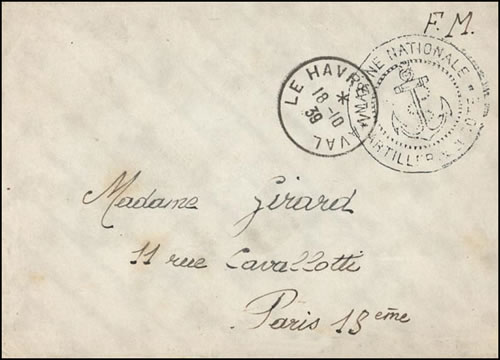 F.M.
LE HAVRE NAVAL
18-10
*
39
MARINE NATIONALE
ARTILLERIE
Madame Girard
11 rue Cavallotti
Paris 18ème